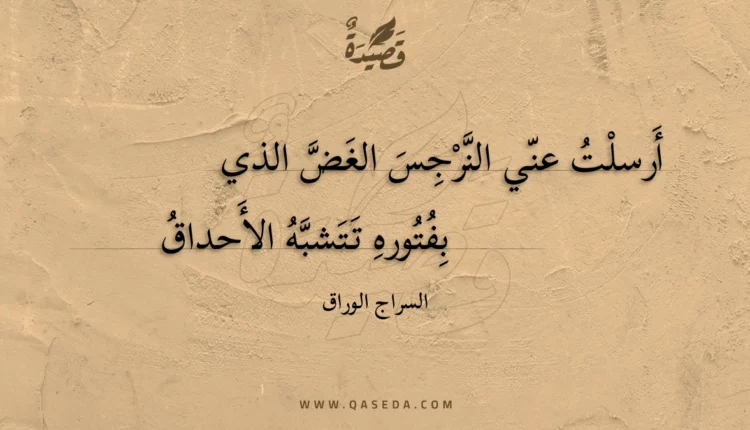 قَصِيدَةٌ
أَرسلْتُ عنّي النَّرْجِسَ الغَضَّ الذي
بِفُتُورهِ تَتَشبَّهُ الأَحداقُ
السراج الوراق
WWW.QASEDA.COM